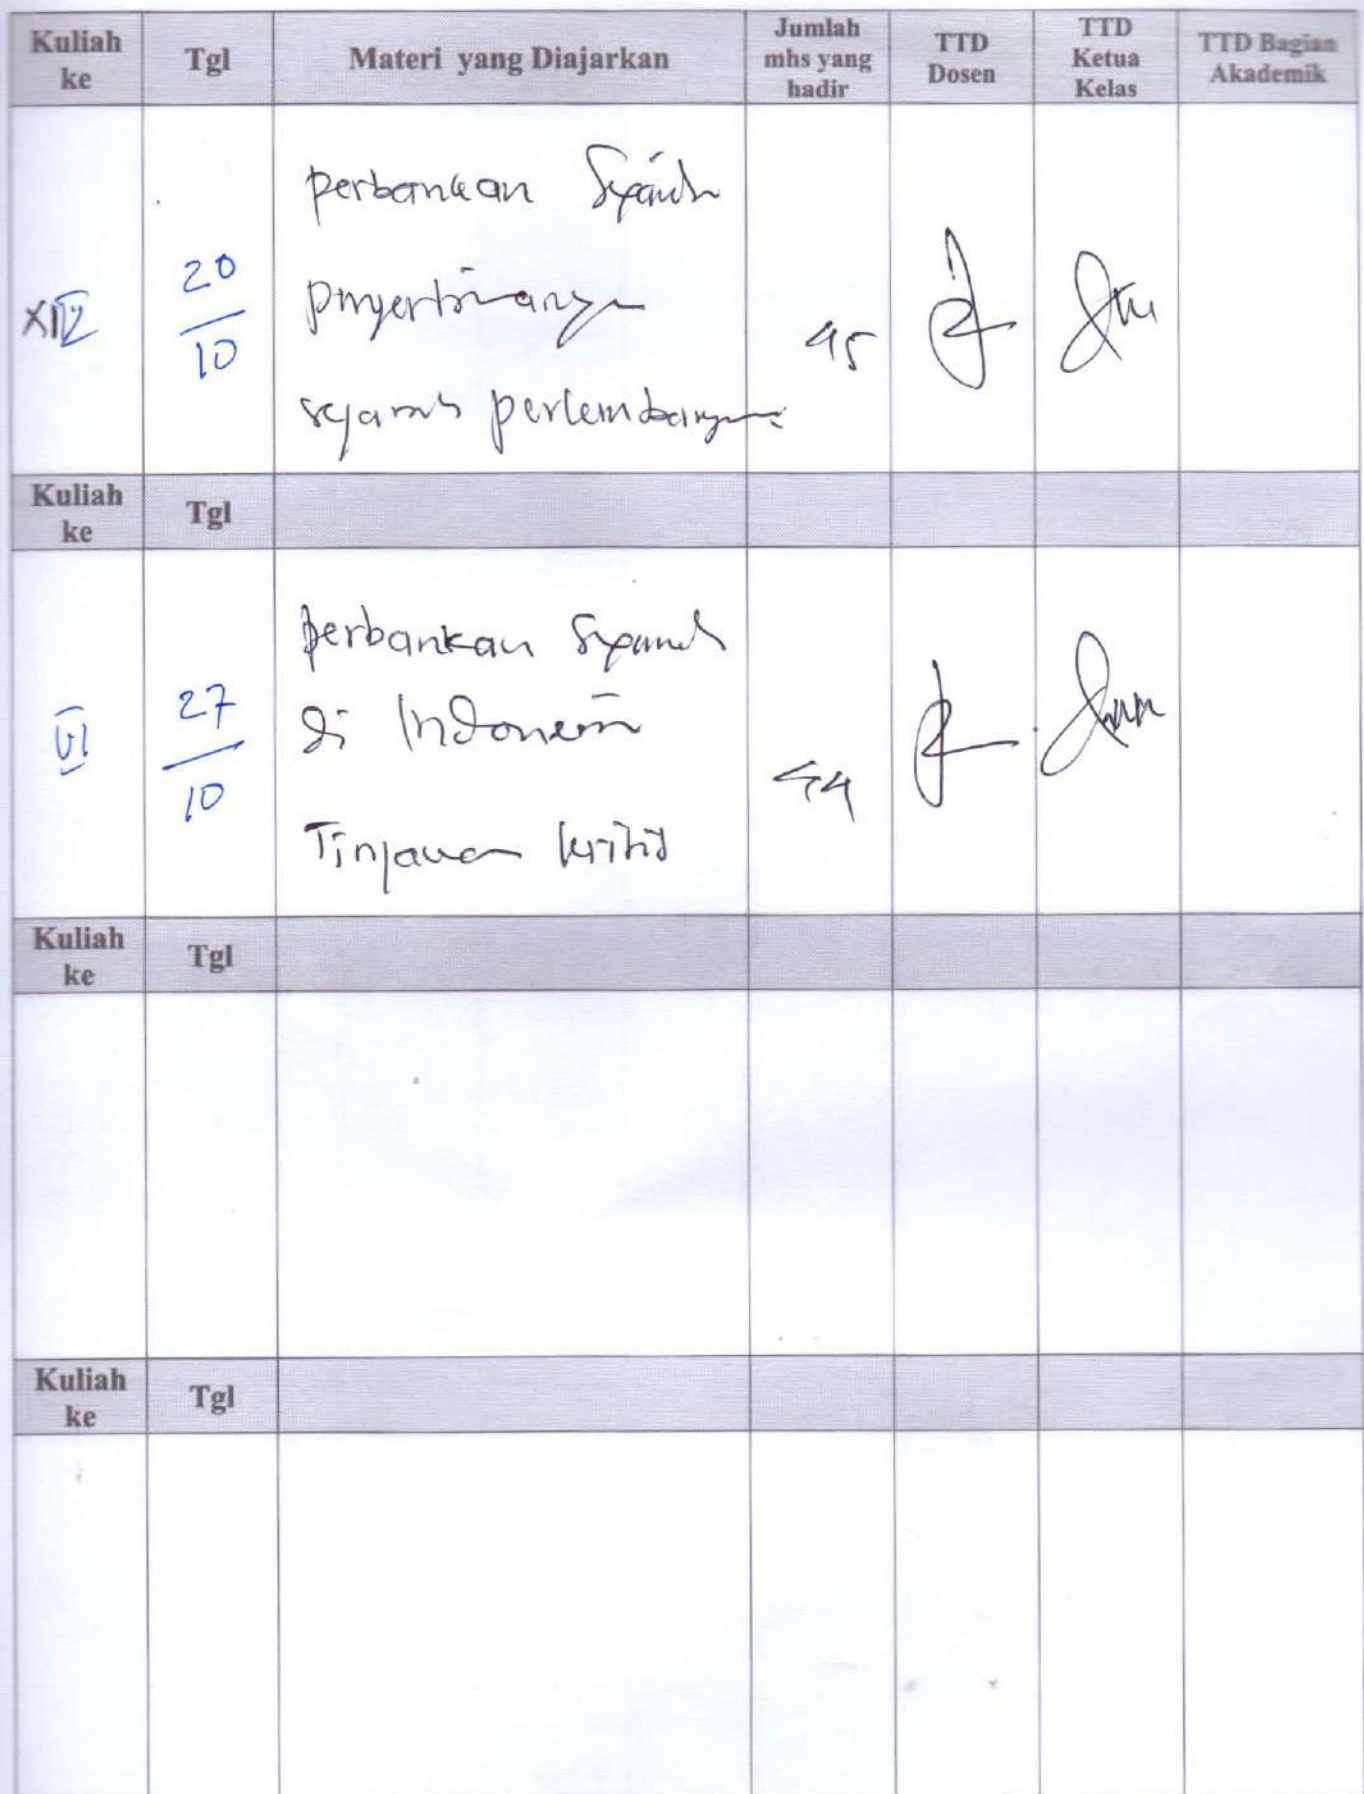 Kuliah ke Tgl Materi yang Diajarkan Jumlah mhs yang hadir TTD Dosen TTD Ketua Kelas TTD Bagian Akademik
perbankan Syariah
20/10 pengertiannya
45
sejarah perkembangannya
Kuliah ke Tgl
perbankan Syariah
VI 27/10 di Indonesia
44
Tinjauan kritis
Kuliah ke Tgl
Kuliah ke Tgl